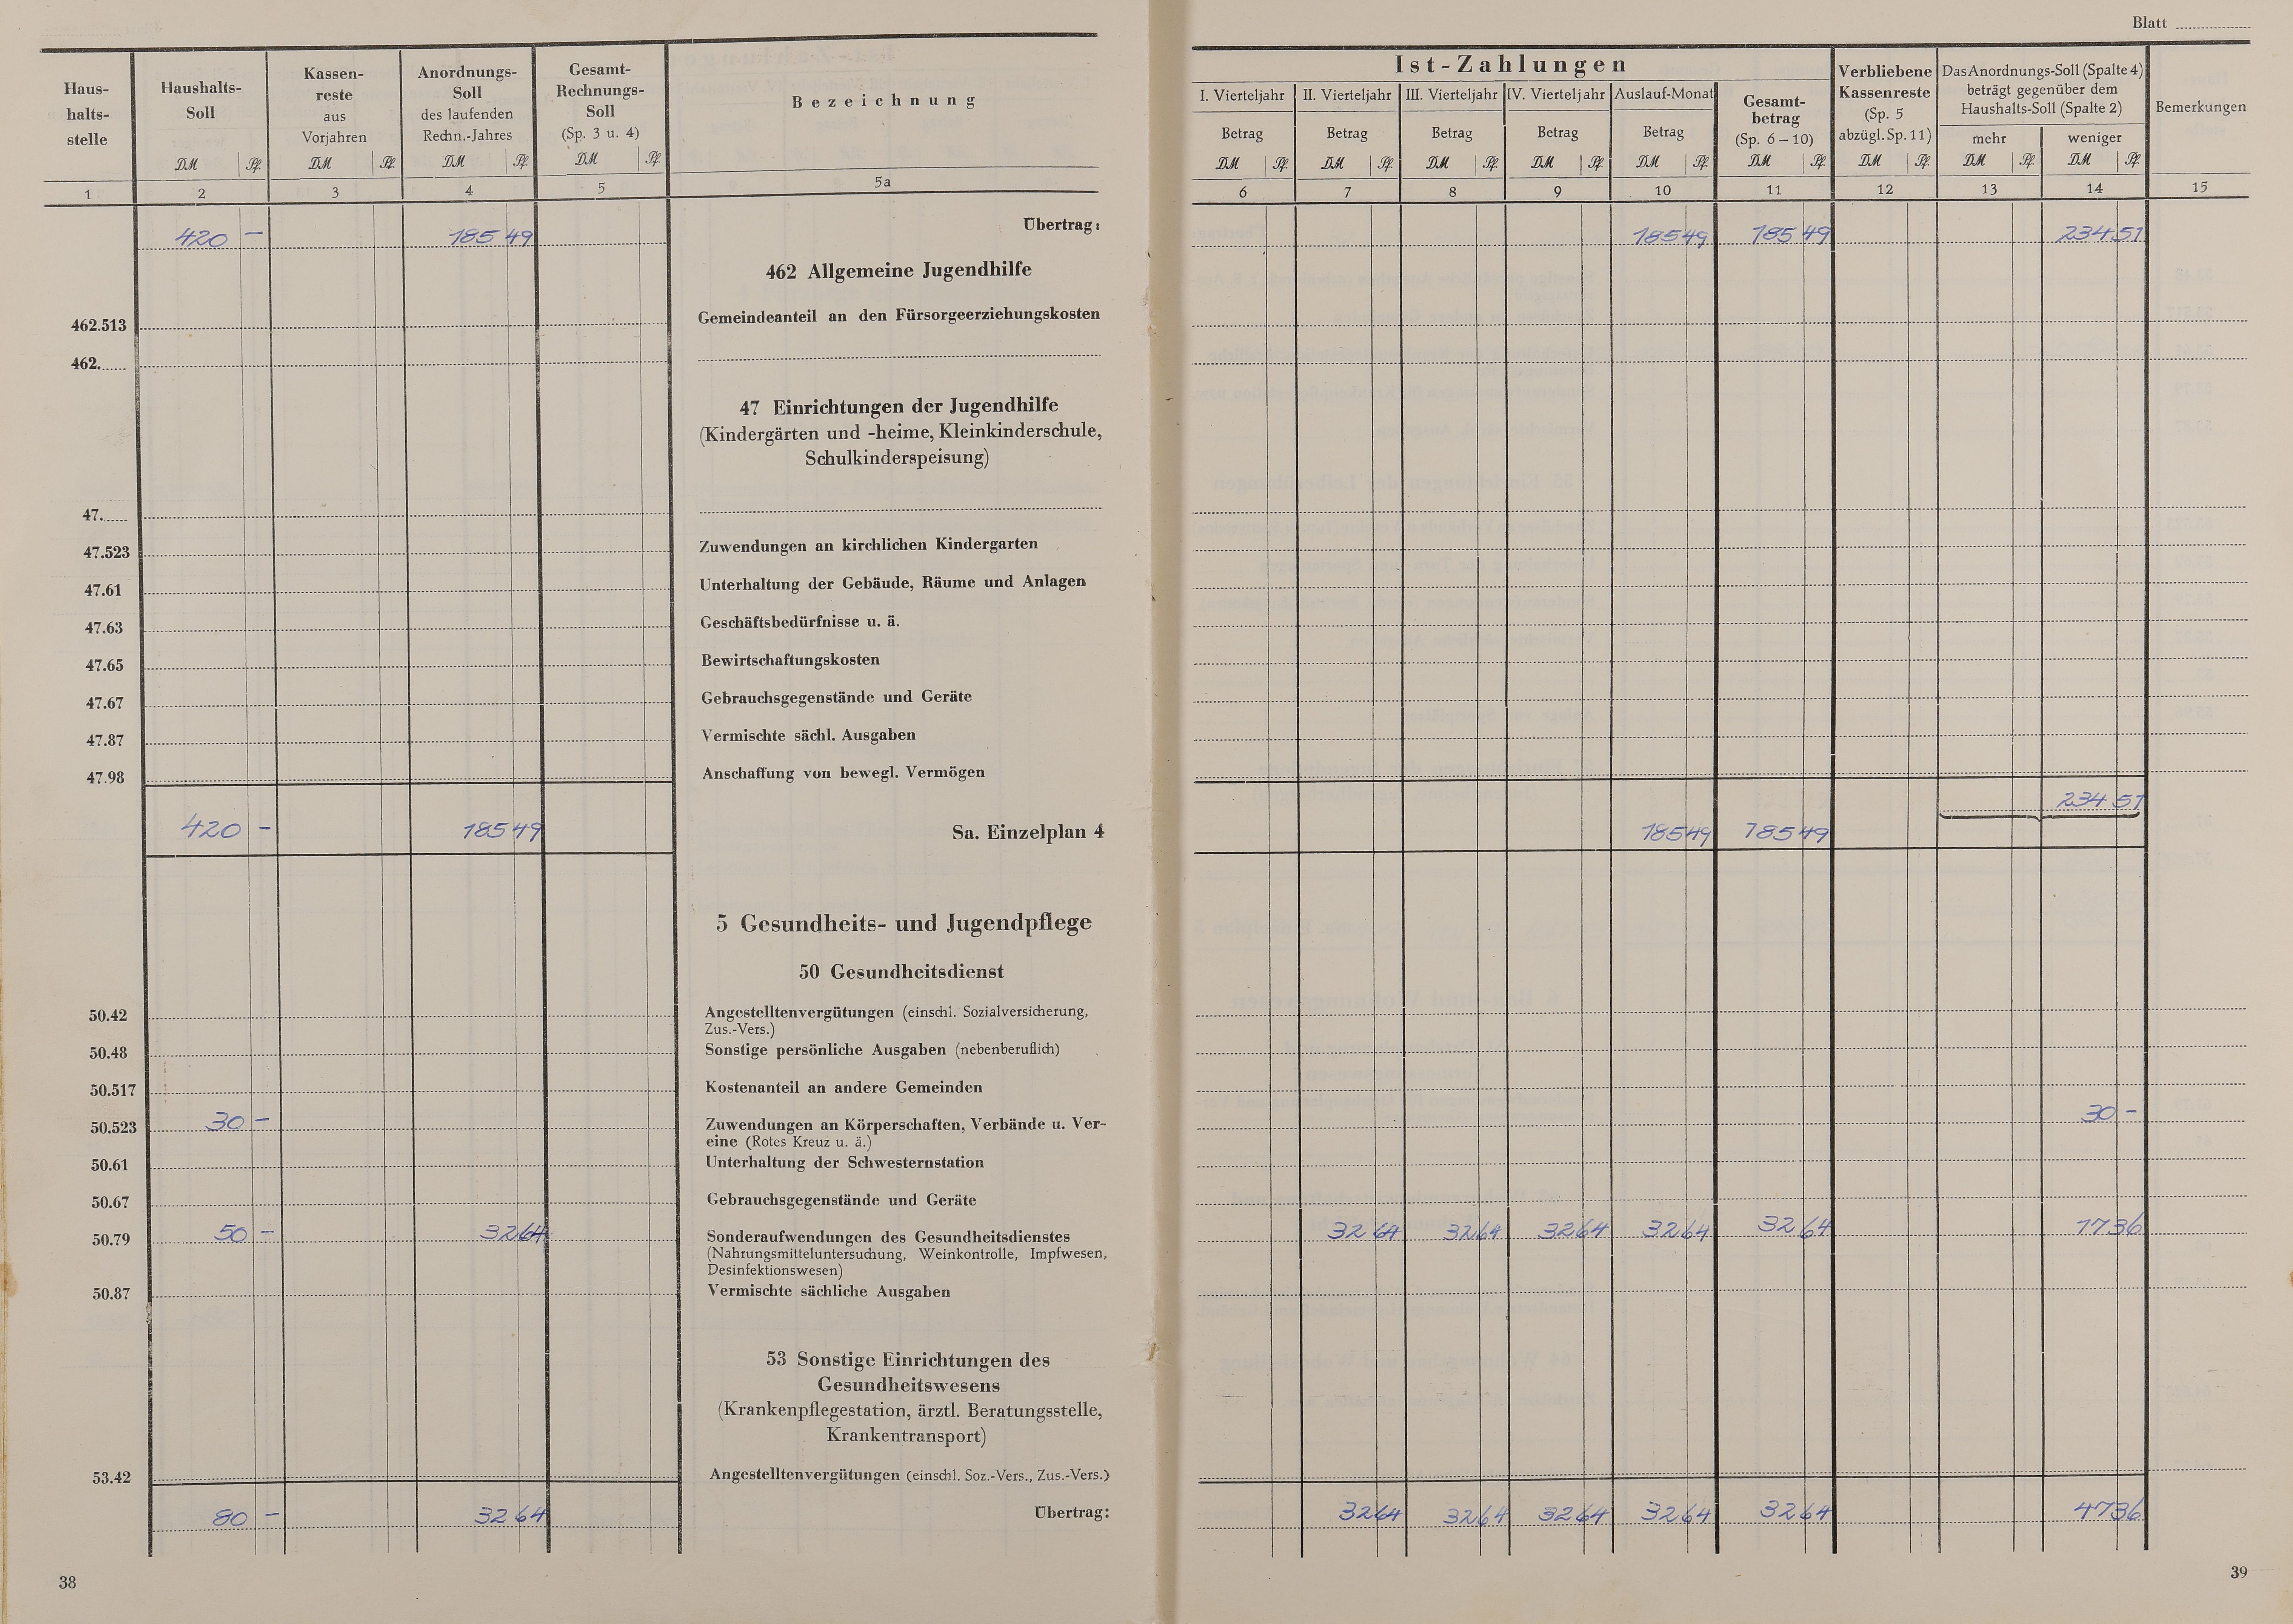 Blatt
Haus-
halts-
stelle
Haushalts-
Soll
Kassen-
reste
aus
Vorjahren
Anordnungs-
Soll
des laufenden
Rechn.-Jahres
Gesamt-
Rechnungs-
Soll
(Sp. 3 u. 4)
Bezeichnung
DM Pf. DM Pf. DM Pf. DM Pf.
1 2 3 4 5 5a
Ist-Zahlungen
I. Vierteljahr II. Vierteljahr III. Vierteljahr IV. Vierteljahr Auslauf-Monat
Betrag Betrag Betrag Betrag Betrag
Gesamt-
betrag
(Sp. 6 – 10)
Verbliebene
Kassenreste
(Sp. 5
abzügl. Sp. 11)
Das Anordnungs-Soll (Spalte 4)
beträgt gegenüber dem
Haushalts-Soll (Spalte 2)
mehr weniger
Bemerkungen
DM Pf. DM Pf. DM Pf. DM Pf. DM Pf. DM Pf. DM Pf. DM Pf. DM Pf.
6 7 8 9 10 11 12 13 14 15
420 – 185 49 Übertrag: 185 49 185 49 234 51
462 Allgemeine Jugendhilfe
462.513 Gemeindeanteil an den Fürsorgeerziehungskosten
462.
47 Einrichtungen der Jugendhilfe
(Kindergärten und -heime, Kleinkinderschule,
Schulkinderspeisung)
47.
47.523 Zuwendungen an kirchlichen Kindergarten
47.61 Unterhaltung der Gebäude, Räume und Anlagen
47.63 Geschäftsbedürfnisse u. ä.
47.65 Bewirtschaftungskosten
47.67 Gebrauchsgegenstände und Geräte
47.87 Vermischte sächl. Ausgaben
47.98 Anschaffung von bewegl. Vermögen
234 51
420 – 185 49 Sa. Einzelplan 4 185 49 185 49
5 Gesundheits- und Jugendpflege
50 Gesundheitsdienst
50.42 Angestelltenvergütungen (einschl. Sozialversicherung,
Zus.-Vers.)
50.48 Sonstige persönliche Ausgaben (nebenberuflich)
50.517 Kostenanteil an andere Gemeinden
50.523 30 – Zuwendungen an Körperschaften, Verbände u. Ver- 30 –
eine (Rotes Kreuz u. ä.)
50.61 Unterhaltung der Schwesternstation
50.67 Gebrauchsgegenstände und Geräte
50.79 50 – 32 64 Sonderaufwendungen des Gesundheitsdienstes 32 64 32 64 32 64 32 64 32 64 17 36
(Nahrungsmitteluntersuchung, Weinkontrolle, Impfwesen,
Desinfektionswesen)
50.87 Vermischte sächliche Ausgaben
53 Sonstige Einrichtungen des
Gesundheitswesens
(Krankenpflegestation, ärztl. Beratungsstelle,
Krankentransport)
53.42 Angestelltenvergütungen (einschl. Soz.-Vers., Zus.-Vers.)
80 – 32 64 Übertrag: 32 64 32 64 32 64 32 64 32 64 47 36
38
39